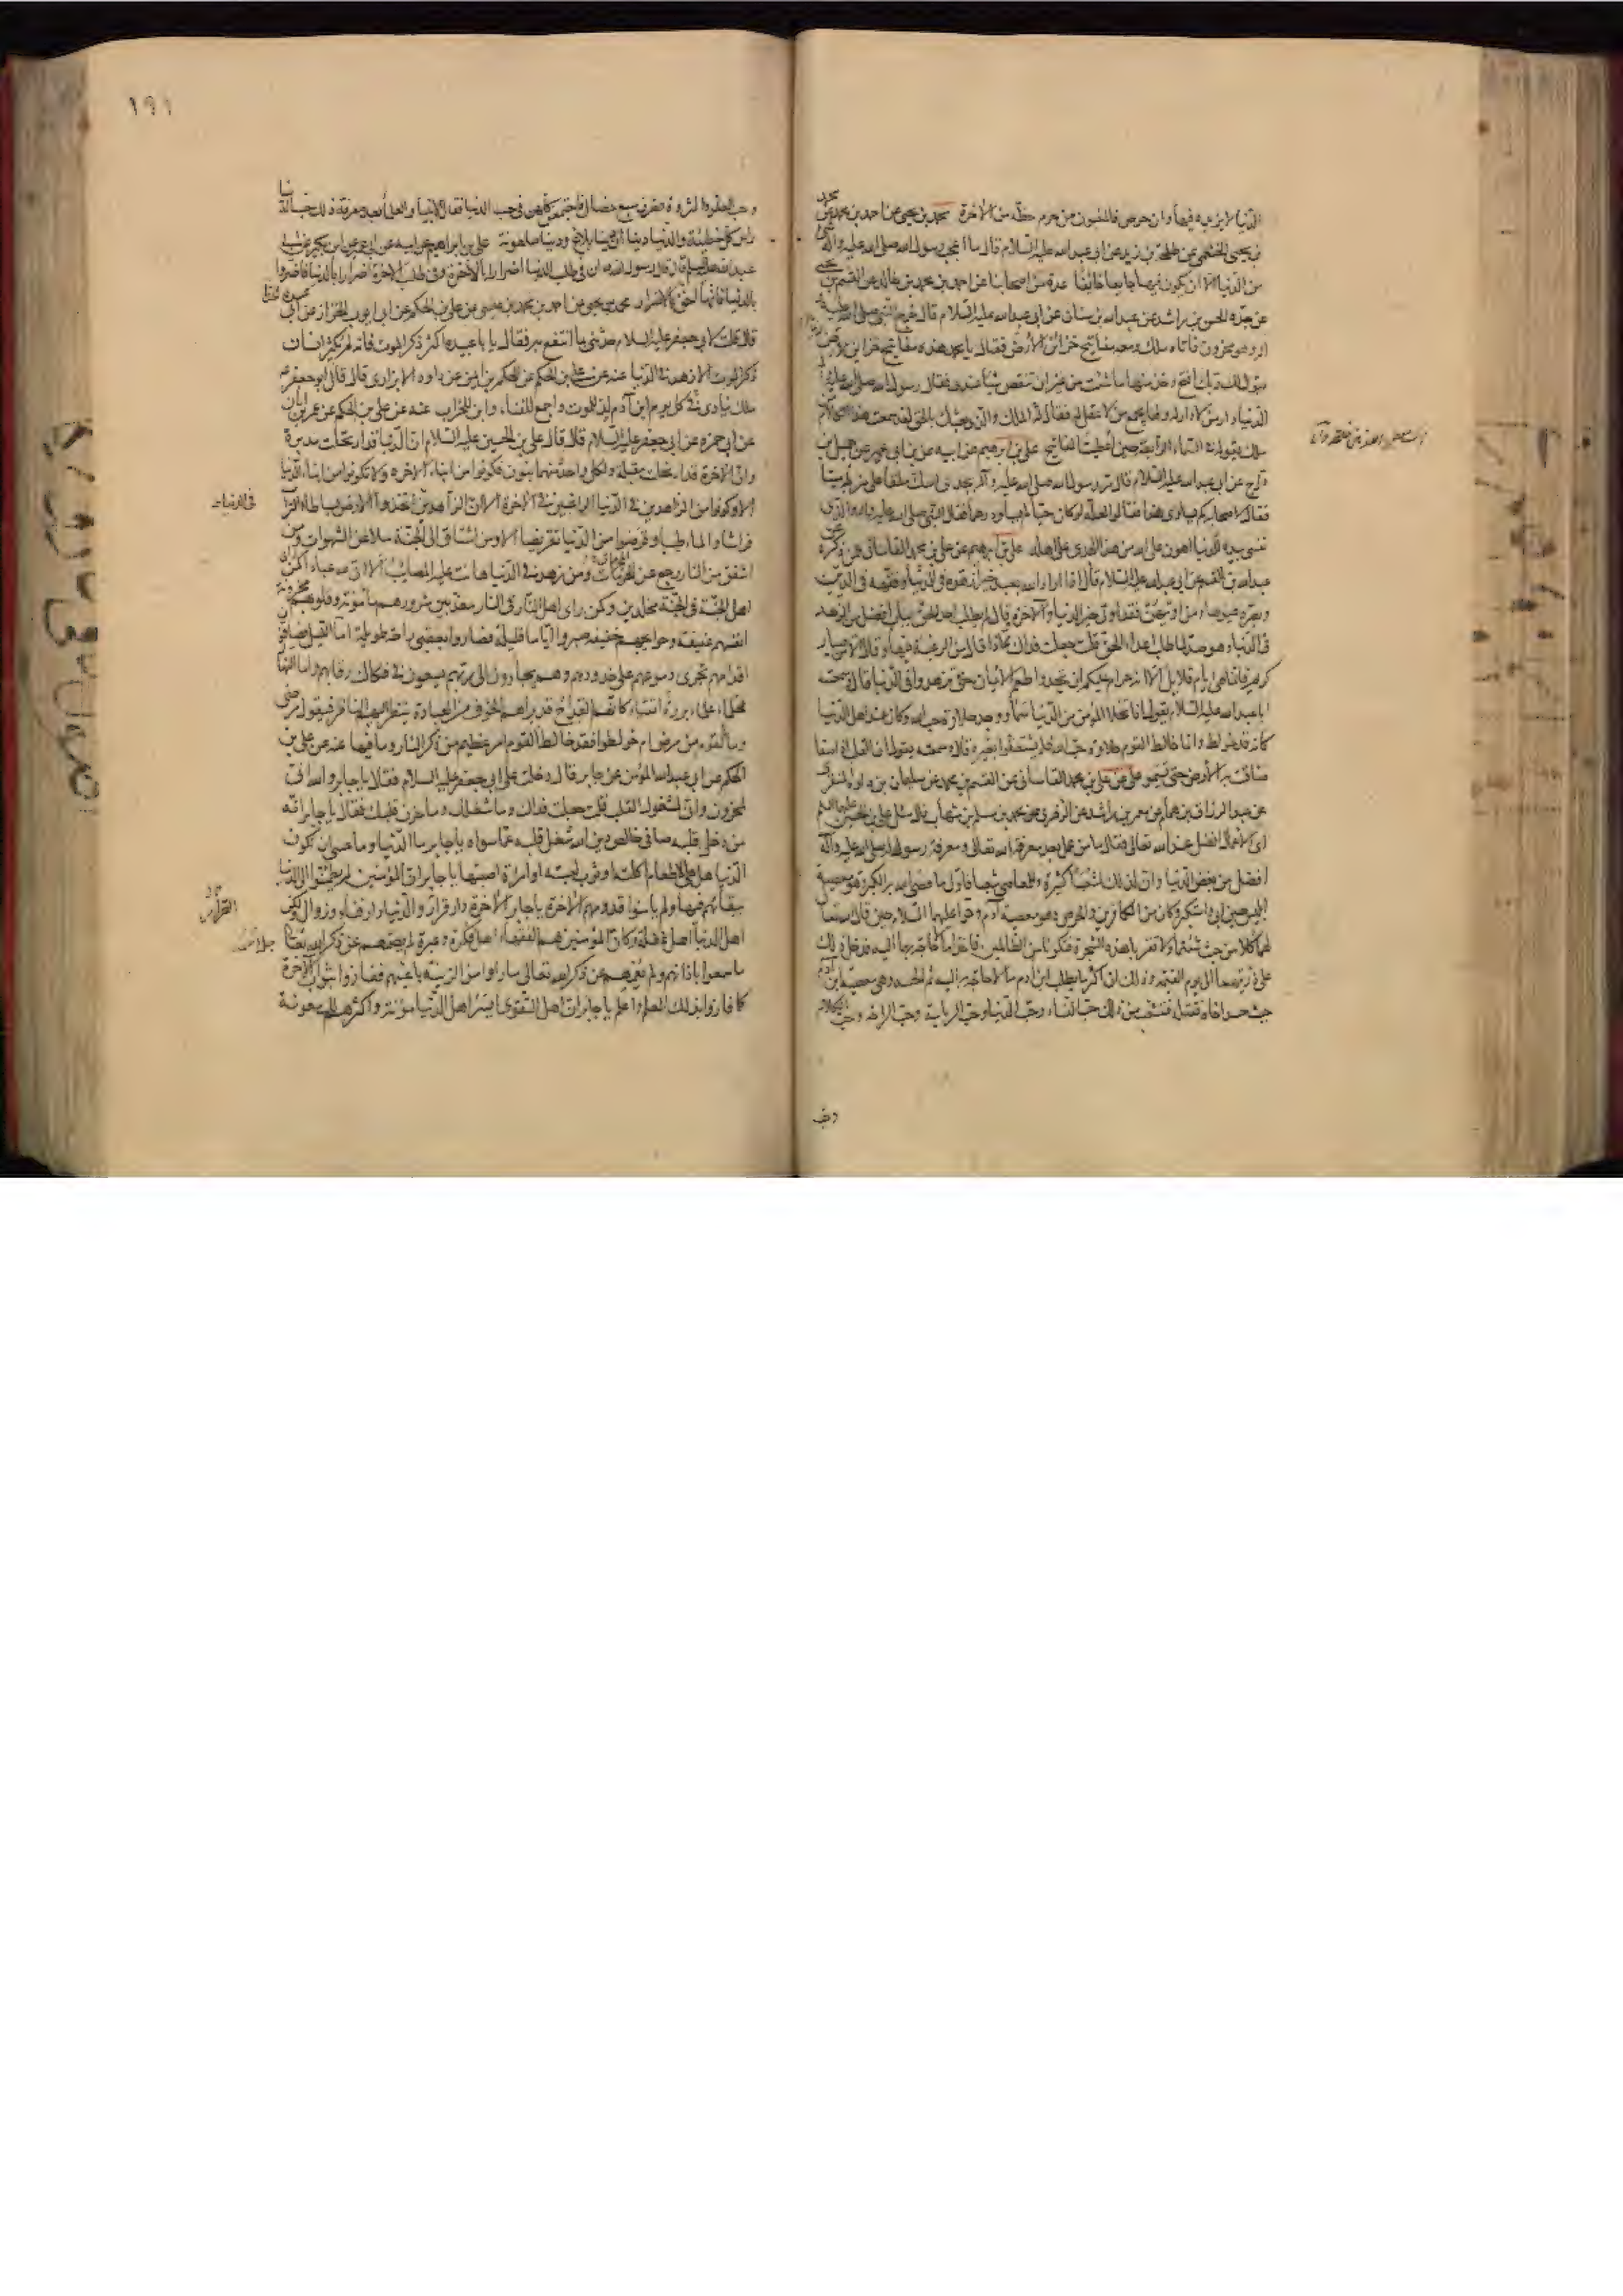 الدنيا لا يزيده فيها وان حرص فالمغبون من حرم حظه من الاخرة محمد بن يحيى عن احمد بن محمد عن محمد
بن يحيى الخثعمي عن طلحة بن زيد عن ابي عبدالله عليه السلام قال ما اعجب رسول الله صلى الله عليه وآله
من الدنيا الا ان يكون فيها جايعا خائفا عدة من اصحابنا عن احمد بن محمد بن خالد عن القسم بن يحيى
عن جده الحسن بن راشد عن عبدالله بن سنان عن ابي عبدالله عليه السلام قال خرج النبي صلى الله عليه
وهو محزون فاتاه ملك ومعه مفاتيح خزائن الارض فقال يا محمد هذه مفاتيح خزاين الارض
يقول لك ربك افتح وخذ منها ما شئت من غير ان تنقص شيئا عندي فقال رسول الله صلى الله عليه
الدنيا دار من لا دار له ولها يجمع من لا عقل له فقال له الملك والذي بعثك بالحق لقد سمعت هذا الكلام من
ملك يقوله في السماء الرابعة حين اعطيت المفاتيح علي بن ابرهيم عن ابيه عن ابن ابي عمير عن جميل بن
دراج عن ابي عبدالله عليه السلام قال مر رسول الله صلى الله عليه وآله بجدي اسك ملقى على مزبلة ميتا
فقال لاصحابه كم يساوي هذا فقالوا لعله لو كان حيا لم يساو درهما فقال النبي صلى الله عليه وآله والذي
نفسي بيده للدنيا اهون على الله من هذا الجدي على اهله علي بن ابرهيم عن علي بن محمد القاساني عمن ذكره عن
عبدالله بن القسم عن ابي عبدالله عليه السلام قال اذا اراد الله بعبد خيرا زهده في الدنيا وفقهه في الدين
وبصره عيوبها ومن اوتيهن فقد اوتي خير الدنيا والآخرة وقال لم يطلب احد الحق بباب افضل من الزهد
في الدنيا وهو ضد لما طلب اعداء الحق قلت جعلت فداك مماذا قال من الرغبة فيها وقال الا من صبار
كريم فانما هي ايام قلايل الا انه حرام عليكم ان تجدوا طعم الايمان حتى تزهدوا في الدنيا قال وسمعت
ابا عبدالله عليه السلام يقول اذا تخلا المؤمن من الدنيا سما ووجد حلاوة حب الله وكان عند اهل الدنيا
كانه قد خولط وانما خالط القوم حلاوة حب الله فلم يشتغلوا بغيره قال وسمعته يقول ان القلب اذا صفا
ضاقت به الارض حتى يسمو علي عن علي بن محمد القاساني عن القسم بن محمد عن سليمان بن داود المنقري
عن عبدالرزاق بن همام عن معمر بن راشد عن الزهري محمد بن مسلم بن شهاب قال سئل علي بن الحسين عليهما السلام
اي الاعمال افضل عند الله تعالى فقال ما من عمل بعد معرفة الله تعالى ومعرفة رسول الله صلى الله عليه وآله
افضل من بغض الدنيا وان لذلك لشعبا كثيرة وللمعاصي شعبا فاول ما عصي الله به الكبر وهو معصية
ابليس حين ابى واستكبر وكان من الكافرين والحرص وهو معصية آدم وحوا عليهما السلام حين قال الله تعالى
لهما كلا من حيث شئتما ولا تقربا هذه الشجرة فتكونا من الظالمين فاخذا ما لا حاجة بهما اليه فدخل ذلك
على ذريتهما الى يوم القيمة وذلك ان اكثر ما يطلب ابن ادم ما لا حاجة به اليه ثم الحسد وهي معصية ابن آدم
حيث حسد اخاه فقتله فتشعب من ذلك حب النساء وحب الدنيا وحب الرياسة وحب الراحة وحب الكلام
وحب
١٩١
وحب العلو والثروة فصرن سبع خصال فاجتمعن كلهن في حب الدنيا فقال الانبياء والعلماء بعد معرفة ذلك حب الدنيا
راس كل خطيئة والدنيا دنياآن دنيا بلاغ ودنيا ملعونة علي بن ابراهيم عن ابيه عن ابن ابي عمير عن ابن بكير عن ابي
عبدالله عليه السلام قال قال رسول الله ان في طلب الدنيا اضرارا بالآخرة وفي طلب الاخرة اضرارا بالدنيا فاضروا
بالدنيا فانها احق بالاضرار محمد بن يحيى عن احمد بن محمد بن عيسى عن علي بن الحكم عن ابي ايوب الخزاز عن ابي عبيدة الحذاء
قال قلت لابي جعفر عليه السلام حدثني بما انتفع به فقال يا با عبيدة اكثر ذكر الموت فانه لم يكثر انسان
ذكر الموت الا زهد في الدنيا عنه عن علي بن الحكم عن الحكم بن ايمن عن داود الابزاري قال قال ابو جعفر ع
ملك ينادي في كل يوم ابن آدم لد للموت واجمع للفناء وابن للخراب عنه عن علي بن الحكم عن عمر بن ابان
عن ابي حمزه عن ابي جعفر عليه السلام قال قال علي بن الحسين عليه السلام ان الدنيا قد ارتحلت مدبرة
وان الاخرة قد ارتحلت مقبلة ولكل واحدة منهما بنون فكونوا من ابناء الاخره ولا تكونوا من ابناء الدنيا
الا وكونوا من الزاهدين في الدنيا الراغبين في الاخرة الا ان الزاهدين في الدنيا اتخذوا الارض بساطا والتراب
فراشا والماء طيبا وقرضوا من الدنيا تقريضا الا ومن اشتاق الى الجنة سلا عن الشهوات ومن
اشفق من النار رجع عن المحرمات ومن زهد في الدنيا هانت عليه المصايب الا ان لله عبادا كمن راى
اهل الجنة في الجنة مخلدين وكمن راى اهل النار في النار معذبين شرورهم مأمونة وقلوبهم محزونة
انفسهم عفيفة وحوايجهم خفيفة صبروا اياما قليلة فصاروا بعقبى راحة طويلة اما الليل فصافون
اقدامهم تجري دموعهم على خدودهم وهم يجأرون الى ربهم يسعون في فكاك رقابهم واما النهار
فحلماء علماء بررة اتقياء كانهم القداح قد براهم الخوف من العبادة ينظر اليهم الناظر فيقول مرضى
وما بالقوم من مرض ام خولطوا فقد خالط القوم امر عظيم من ذكر النار وما فيها عنه عن علي بن
الحكم عن ابي عبدالله المؤمن عن جابر قال دخلت على ابي جعفر عليه السلام فقال يا جابر والله اني
لمحزون واني لمشغول القلب قلت جعلت فداك وما شغلك وما حزن قلبك فقال يا جابر انه
من دخل قلبه صافي خالص دين الله شغل قلبه عما سواه يا جابر ما الدنيا وما عسى ان تكون
الدنيا هل هي الا طعام اكلته او ثوب لبسته او امراة اصبتها يا جابر ان المؤمنين لم يطمئنوا الى الدنيا
ببقائهم فيها ولم يامنوا قدومهم الاخرة يا جابر الاخرة دار قرار والدنيا دار فناء وزوال ولكن
اهل الدنيا اهل غفلة وكان المؤمنين هم الفقهاء اهل فكرة وعبرة لم يصمهم عن ذكر الله تعالى
ما سمعوا باذانهم ولم يعمهم عن ذكر الله تعالى ما راوا من الزينة باعينهم ففازوا بثواب الآخرة
كما فازوا بذلك العلم واعلم يا جابر ان اهل التقوى ايسر اهل الدنيا مؤنة واكثرهم لك معونة